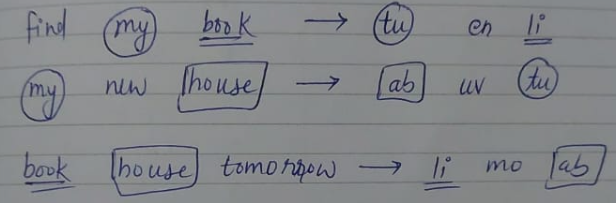 find my book → tu en li
my new house → ab uv tu
book house tomorrow → li mo ab